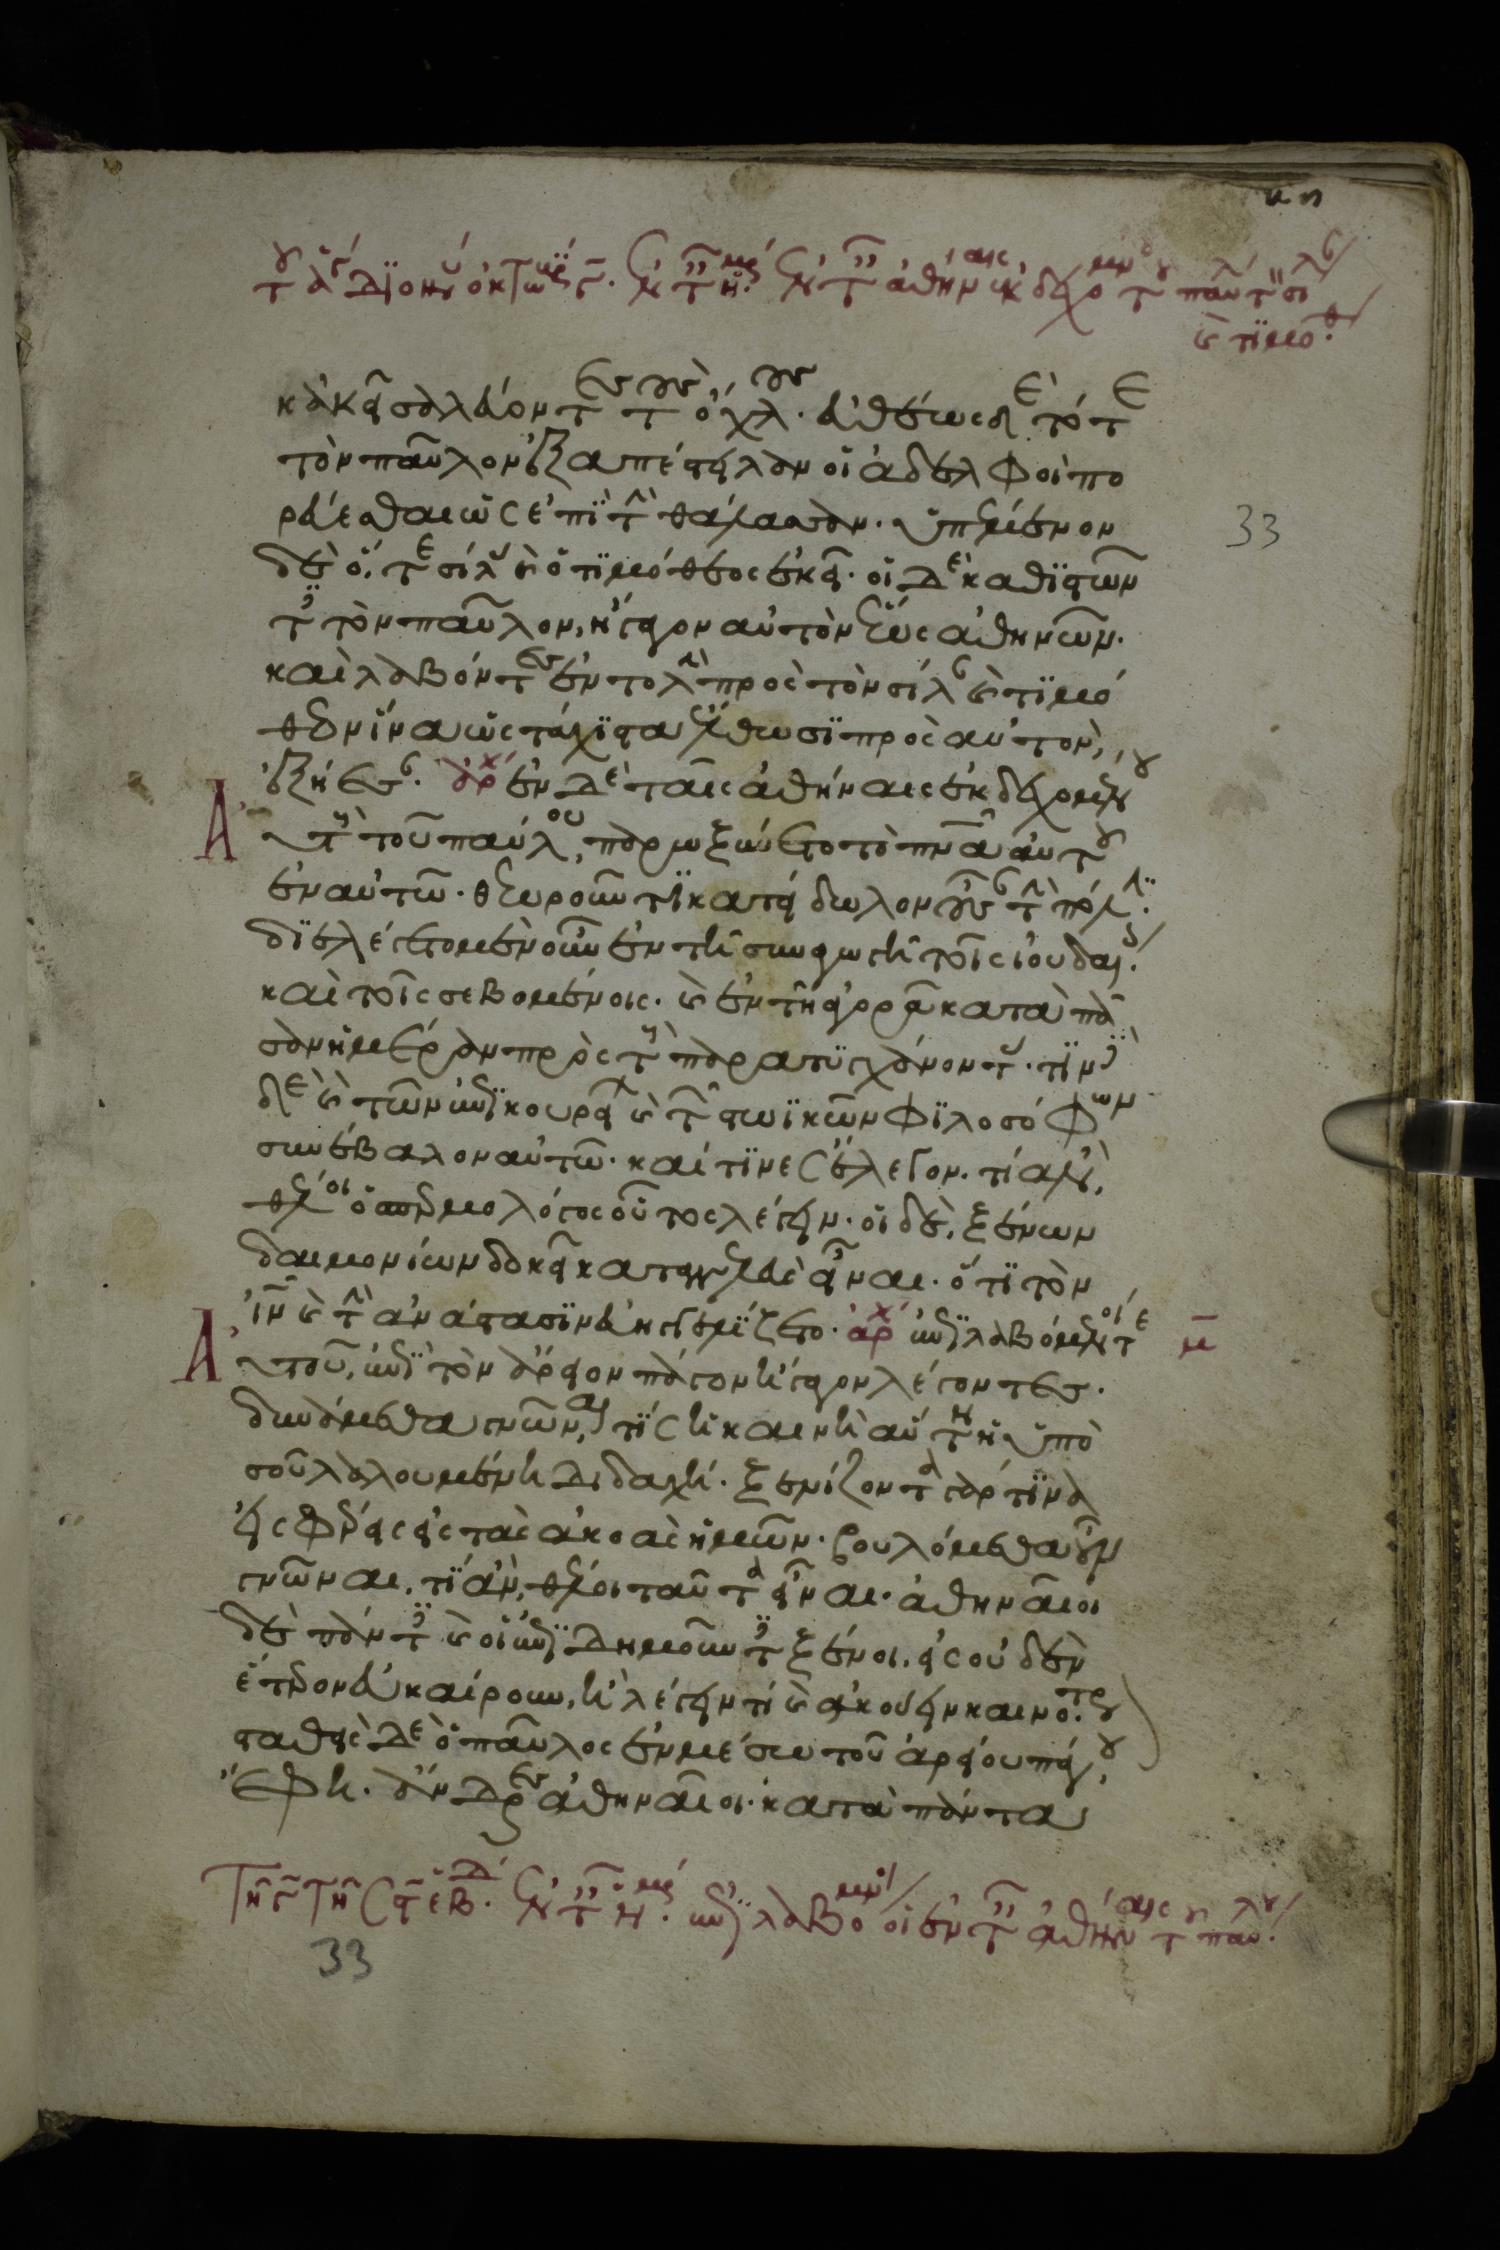 κἀκεῖ σαλεύοντες τοὺς ὄχλους. εὐθέως δὲ τότε
τὸν παῦλον ἐξαπέστειλαν οἱ ἀδελφοὶ πο
ρεύεσθαι ὡς ἐπῒ τὴν θάλασσαν. ὑπέμενον
δὲ ὅ,τε σίλας καὶ ὁ τϊμόθεος ἐκεῖ. οἱ δὲ καθϊστῶν
τες τὸν παῦλον, ἤγαγον αὐτὸν ἕως ἀθηνῶν.
καὶ λαβόντες ἐντολὴν πρὸς τὸν σίλαν καὶ τϊμό
θεον ἵνα ὡς τάχϊστα ἔλθωσϊ πρὸς αὐτὸν,
ἐξήεσαν. ἀρχ ἐν δὲ ταῖς ἀθήναις ἐκδεχομένου
Αὐτοὺς τοῦ παύλου, παρωξύνετο τὸ πνᾶ αὐτοῦ
ἐν αὐτῶ. θεωροῦντϊ κατείδωλον οὖσαν τὴν πόλϊν.
δϊελέγετο μὲν οὖν ἐν τῆ συναγωγῆ τοῖς ἰουδαίοις
καὶ τοῖς σεβομένοις. καὶ ἐν τῆ ἀγορᾶ κατὰ πᾶ
σαν ἡμέραν πρὸς τοὺς παρατυγχάνοντας. τϊνὲς
δὲ καὶ τῶν ἐπϊκουρείων καὶ τῶν στωϊκῶν φϊλοσόφων
συνέβαλον αὐτῶ. καί τϊνες ἔλεγον. τί ἂν,
θέλοι ὁ σπερμολόγος οὗτος λέγειν. οἱ δὲ, ξένων
δαιμονίων δοκεῖ καταγγελεὺς εἶναι. ὅτϊ τὸν
ἰν̅ καὶ τὴν ἀνάστασϊν εὐηγγελϊζετο. ἀρχ ἐπϊλαβόμενοί τε μ̅
Αὐτοῦ, ἐπῒ τὸν ἄρειον πάγον ἤγαγον λέγοντες.
δυνάμεθα γνῶναι, τϊς ἡ καινὴ αὕτη ἡ ὑπὸ
σοῦ λαλουμένη διδαχή. ξενίζοντα γάρ τϊνα
εἰσφέρεις εἰς τὰς ἀκοὰς ἡμῶν. βουλόμεθα οὖν
γνῶναι, τϊ ἂν, θέλοι ταῦτα εἶναι. ἀθηναῖοι
δὲ πάντες καὶ οἱ ἐπϊδημοῦντες ξένοι, εἰς οὐδὲν
ἕτερον εὐκαίρουν, ἢ λέγειν τί καὶ ἀκούειν καινότερον.
σταθεὶς δὲ ὁ παῦλος ἐν μέσω τοῦ ἀρείου πάγου,
ἔφη. ἄνδρες ἀθηναῖοι. κατὰ πάντα
33
33